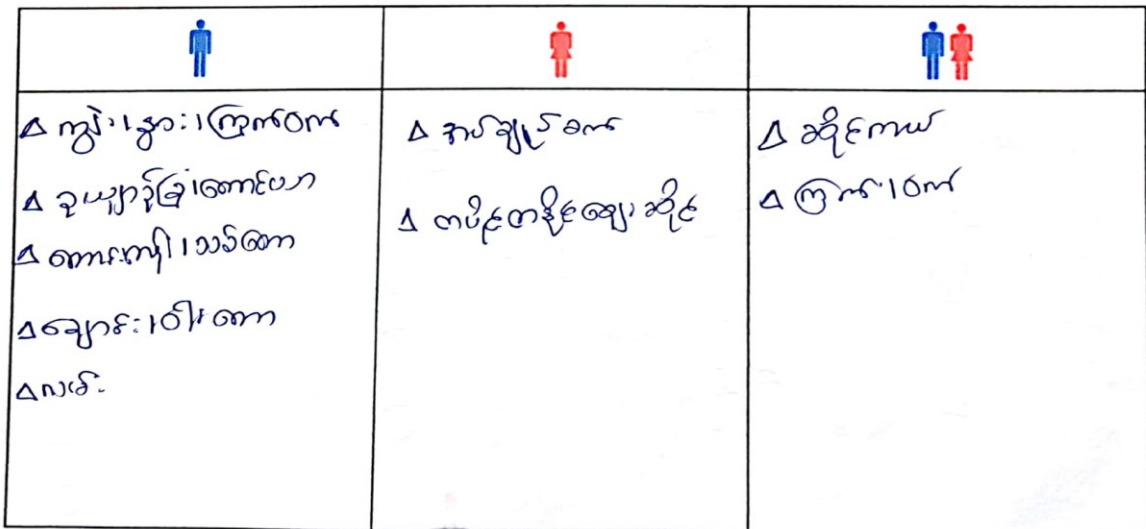 Δ ကျွဲ၊ နွား၊ ကြက်ဝက်
Δ ဥယျာဉ်ခြံ၊ တောင်ယာ
Δ သစ်တော
Δ ချောင်း၊ ဝါးတော
Δ လမ်း
Δ အပ်ချုပ်စက်
Δ တပိုင်တနိုင်ဈေးဆိုင်
Δ ဆိုင်ကယ်
Δ ကြက်၊ ဝက်